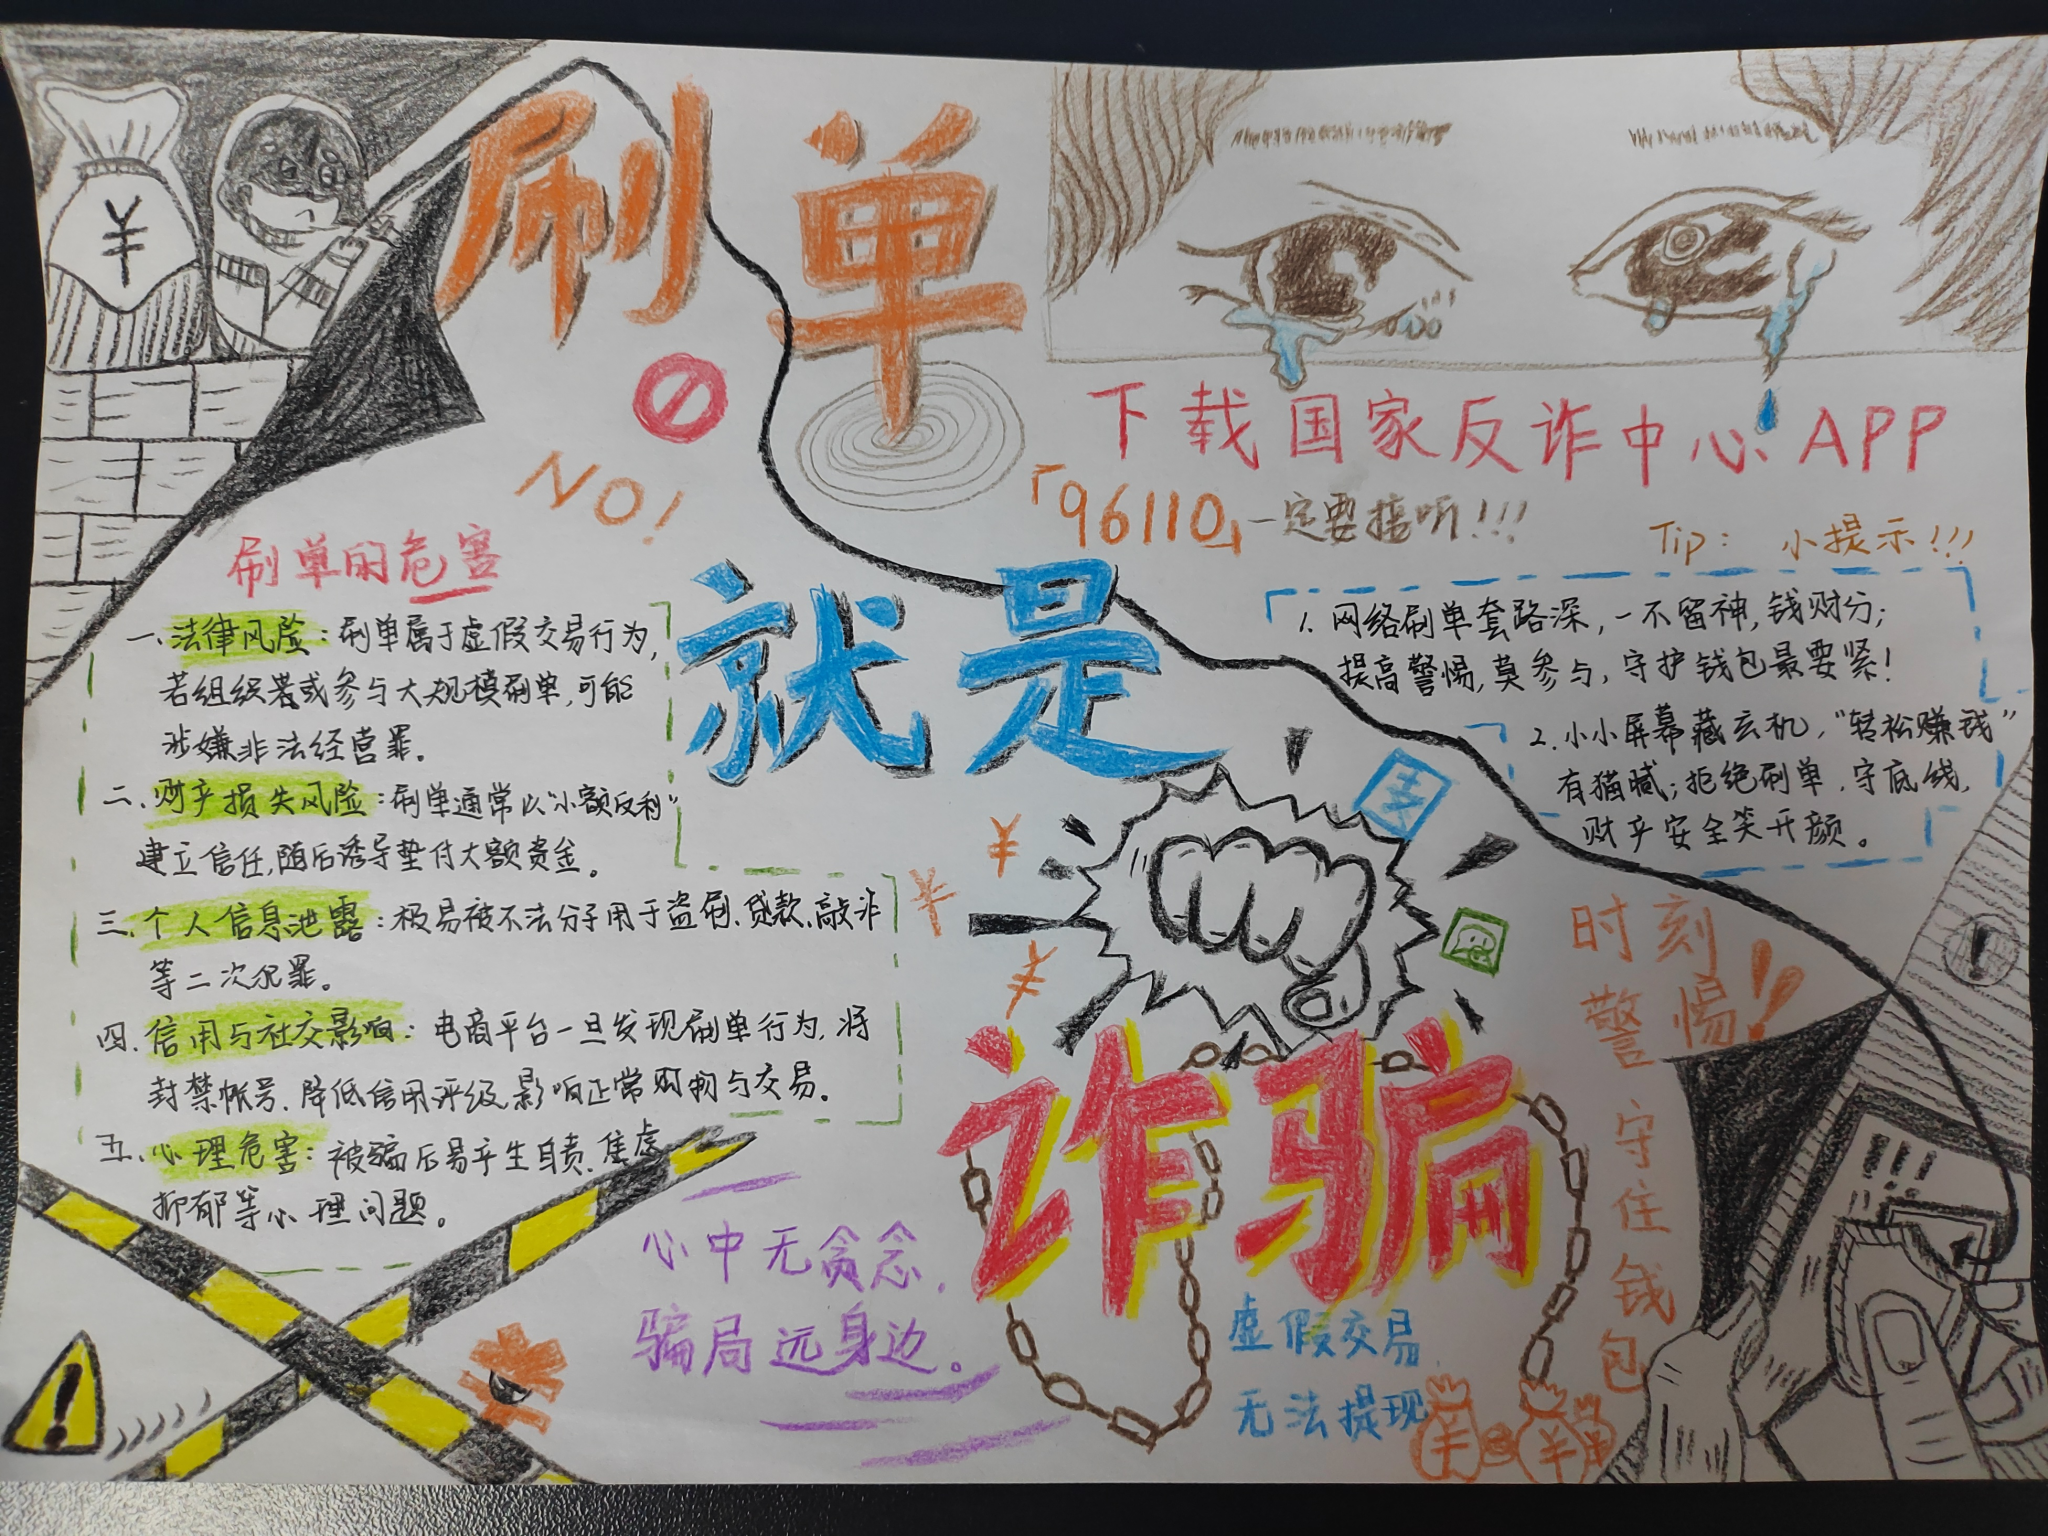 刷单
NO!
下载国家反诈中心APP
「96110」一定要接听!!!
刷单的危害
一、法律风险：刷单属于虚假交易行为，
若组织者或参与大规模刷单，可能
涉嫌非法经营罪。
二、财产损失风险：刷单通常以“小额反利”
建立信任，随后诱导垫付大额资金。
三、个人信息泄露：极易被不法分子用于盗刷、贷款、敲诈
等二次犯罪。
四、信用与社交影响：电商平台一旦发现刷单行为，将
封禁帐号、降低信用评级影响正常购物与交易。
五、心理危害：被骗后易产生自责、焦虑
抑郁等心理问题。
就是
Tip： 小提示!!!
1. 网络刷单套路深，一不留神，钱财分；
提高警惕，莫参与，守护钱包最要紧！
2. 小小屏幕藏玄机，“轻松赚钱”
有猫腻；拒绝刷单，守底线，
财产安全笑开颜。
诈骗
时刻
警惕!!
守住钱包
心中无贪念，
骗局远身边。
虚假交易，
无法提现
¥
¥
¥
¥
¥
¥
¥
!
!
!!!